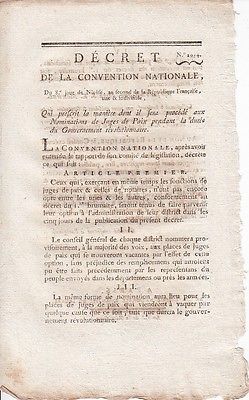 DÉCRET
DE LA CONVENTION NATIONALE,
Du 8.e jour de Nivôse, an second de la République Française,
une & indivisible,
Qui prescrit la manière dont il sera procédé aux
Nominations de Juges de Paix pendant la durée
du Gouvernement révolutionnaire.
LA CONVENTION NATIONALE, après avoir
entendu le rapport de son comité de législation, décrete
ce qui suit :
ARTICLE PREMIER.
Ceux qui, exerçant en même temps les fonctions de
juges de paix & celles de notaires, n'ont pas encore
opté entre les unes & les autres, conformément au
décret du brumaire, seront tenus de faire
option à l'administration de leur district dans les cinq
jours de la publication du présent décret.
II.
Le conseil général de chaque district nommera provisoirement,
à la majorité des voix, aux places de juges
de paix qui se trouveront vacantes par l'effet de cette
option, sans préjudice des remplacemens qui auroient
pu être faits précédemment par les représentans du
peuple envoyés dans les départemens ou près les armées.
III.
La même forme de nomination aura lieu pour les
places de juges de paix qui viendront à vaquer par
quelque cause que ce soit, tant que durera le gouvernement
révolutionnaire.